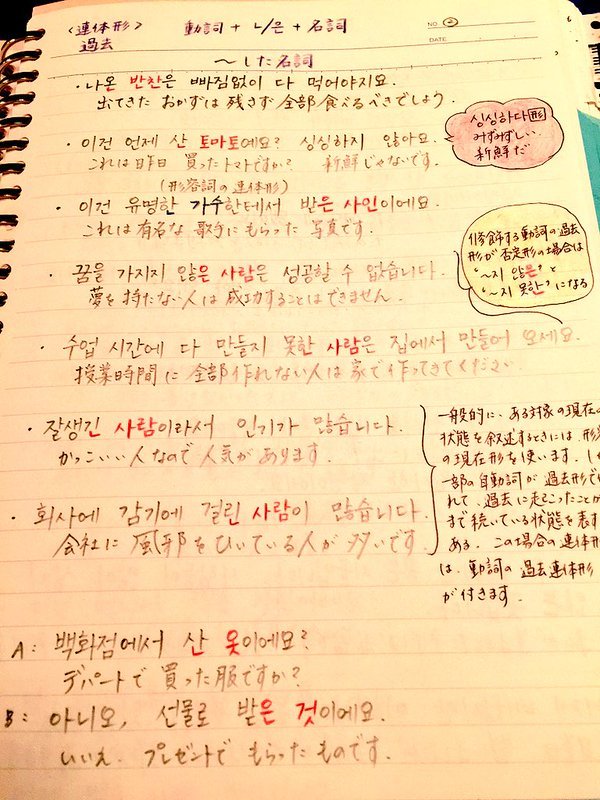 <連体形>
過去
動詞 + ㄴ/은 + 名詞
NO. ②
DATE
～した名詞
・나온 반찬은 빠짐없이 다 먹어야지요.
出てきた おかずは 残さず 全部 食べるべきでしょう.
・이건 언제 산 토마토예요? 싱싱하지 않아요.
これは 昨日 買ったトマトですか? 新鮮じゃないです.
(形容詞の連体形)
싱싱하다 形
みずみずしい.
新鮮だ
・이건 유명한 가수한테서 받은 사인이에요.
これは 有名な 歌手に もらった 写真です.
修飾する動詞の過去
形が 否定形の場合は
"～지 않은" と
"～지 못한" になる
・꿈을 가지지 않은 사람은 성공할 수 없습니다.
夢を 持たない 人は 成功することは できません.
・수업 시간에 다 만들지 못한 사람은 집에서 만들어 오세요.
授業時間に 全部 作れない 人は 家で 作ってきてください
・잘생긴 사람이라서 인기가 많습니다.
かっこいい 人なので 人気が あります.
・회사에 감기에 걸린 사람이 많습니다.
会社に 風邪をひいている 人が 多いです
一般的に、ある対象の現在の
状態を叙述するときには、形
の現在形を使います.
一部の自動詞が 過去形で
れて、過去に起こったことが
まで続いている状態を表す
ある. この場合の連体形
は、動詞の過去連体形
が付きます.
A: 백화점에서 산 옷이에요?
デパートで 買った服ですか?
B: 아니오, 선물로 받은 것이에요.
いいえ. プレゼントで もらったものです.